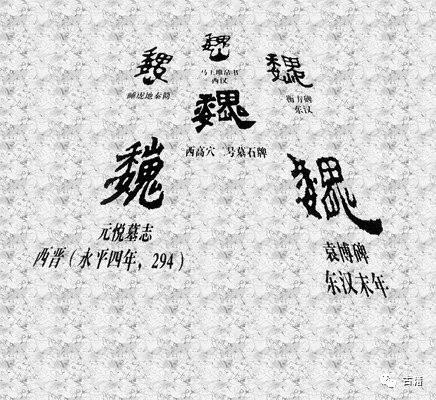 魏
魏
魏
睡虎地秦简
马王堆帛书
西汉
衡方碑
东汉
魏
西高穴二号墓石牌
魏
魏
元悦墓志
西晋（永平四年，294）
袁博碑
东汉末年